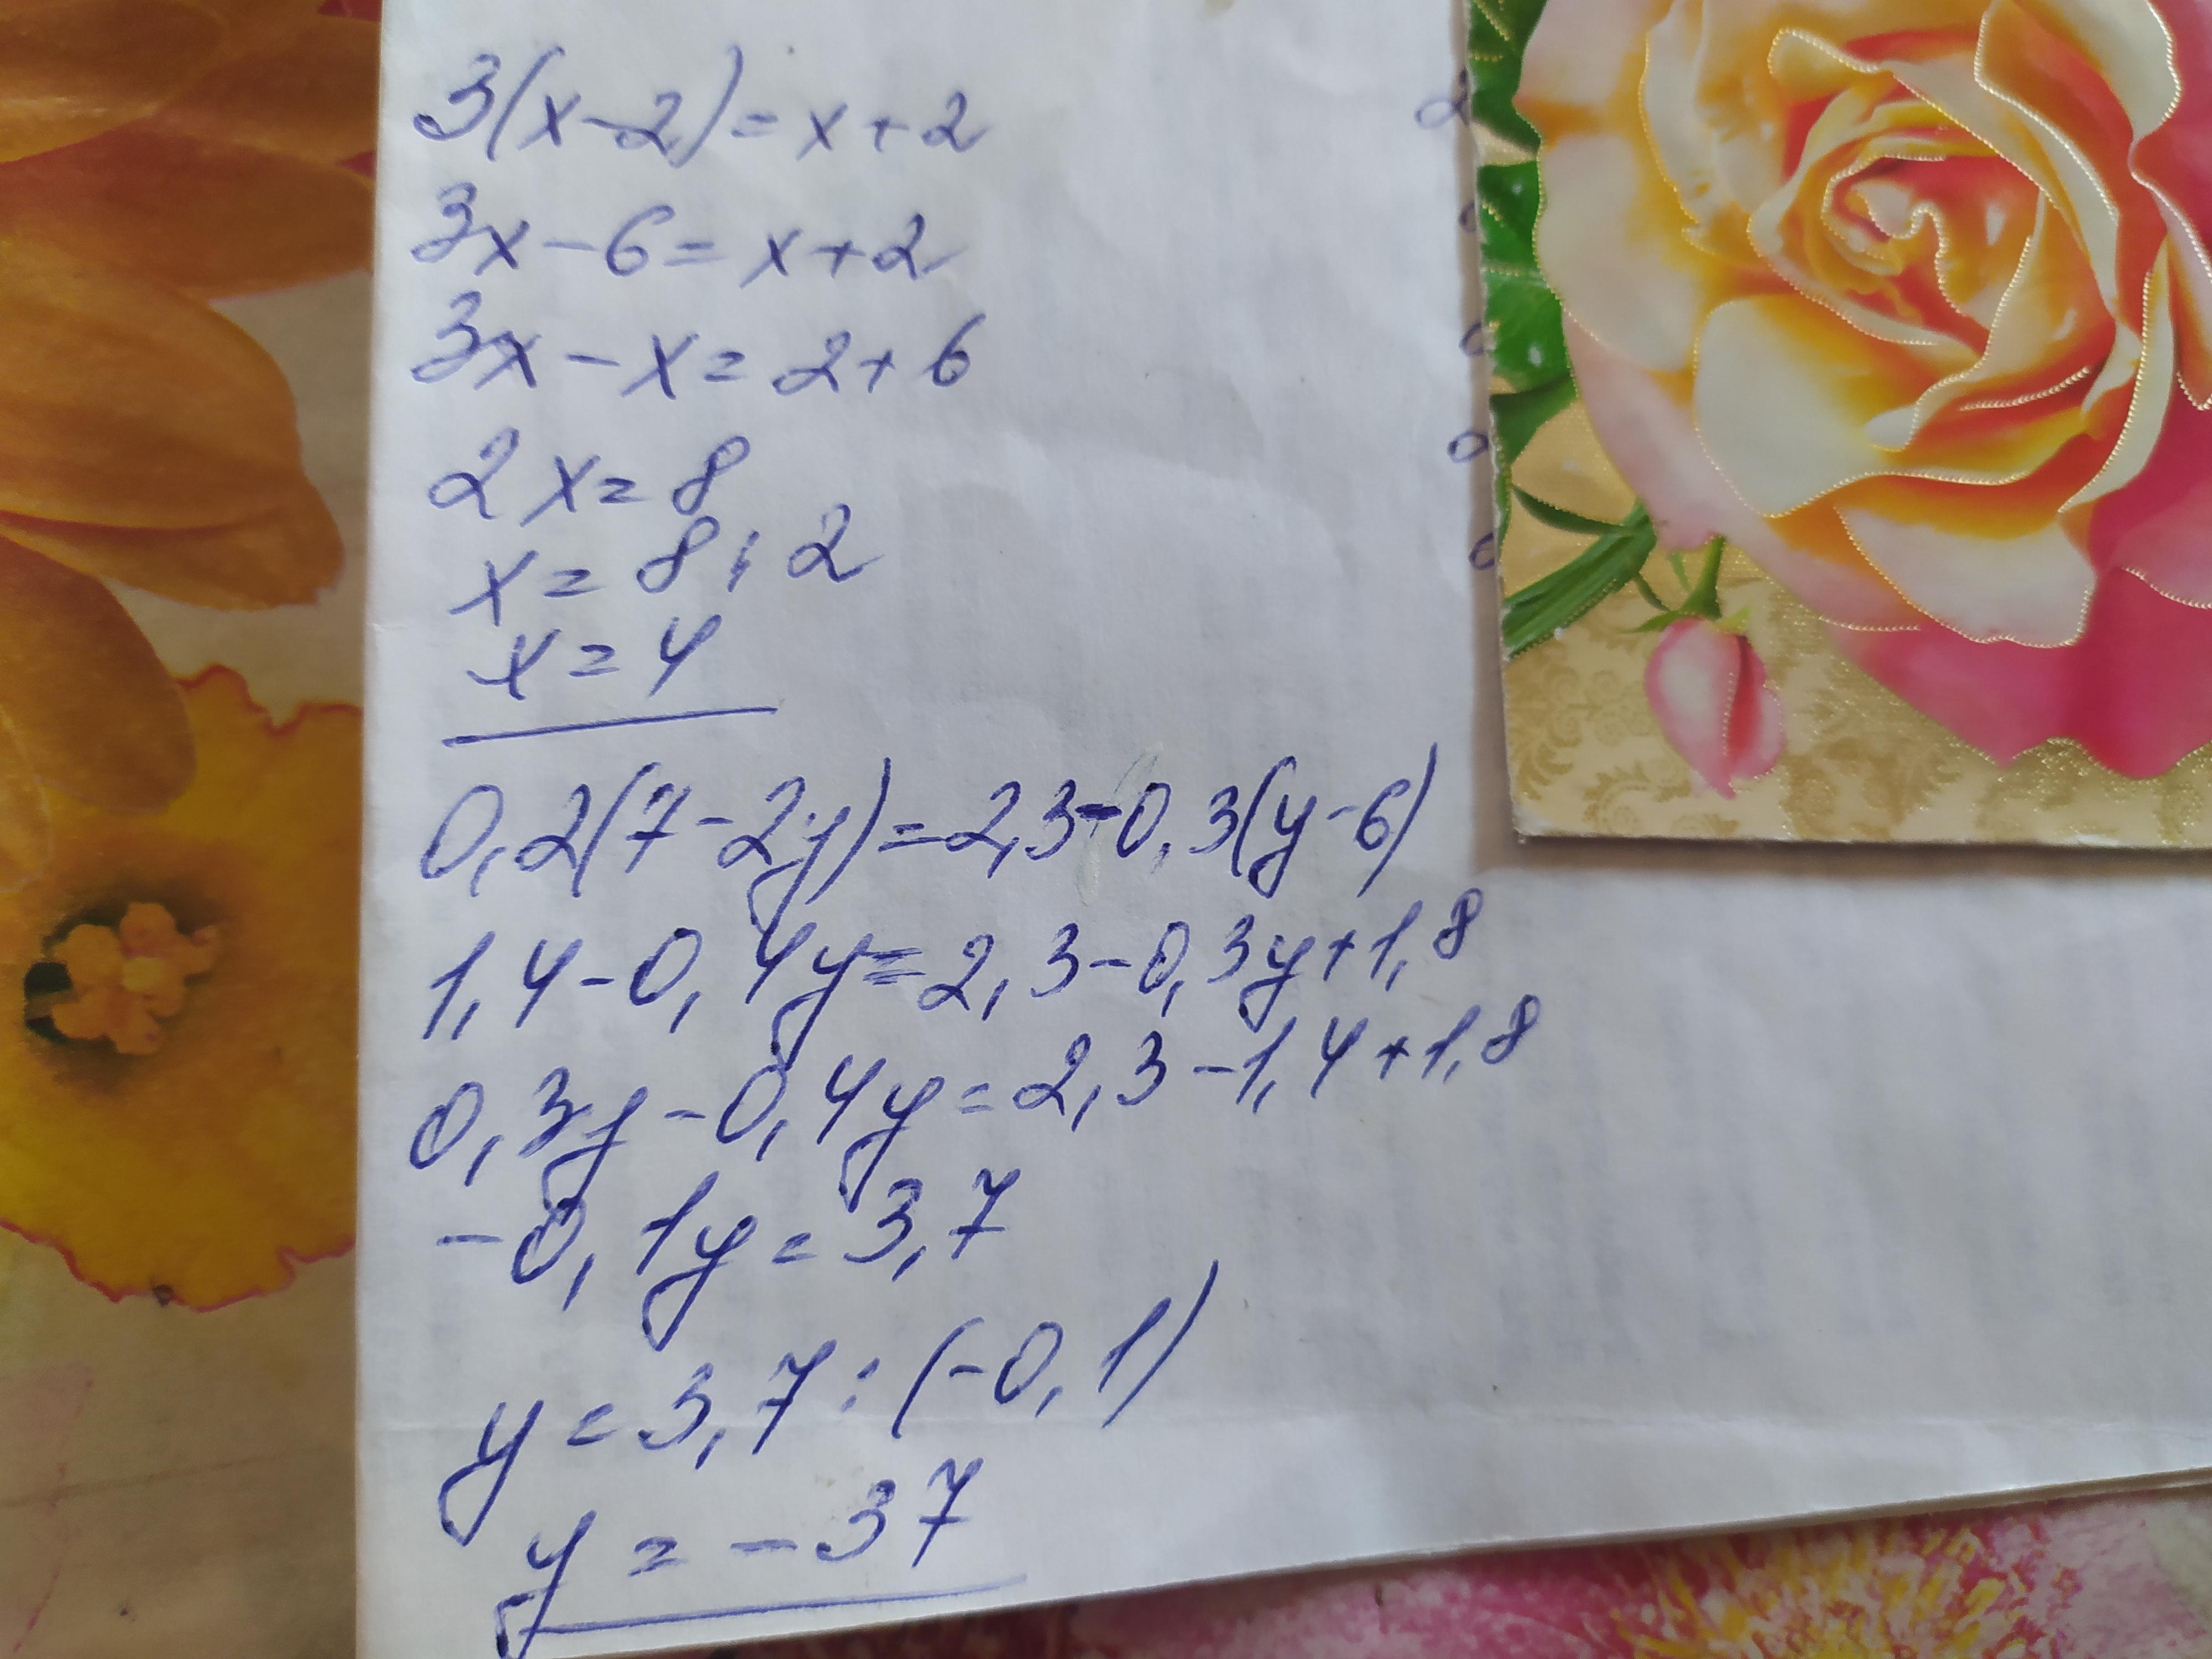 3(x-2)=x+2
3x-6=x+2
3x-x=2+6
2x=8
x=8:2
x=4
0,2(7-2y)=2,3-0,3(y-6)
1,4-0,4y=2,3-0,3y+1,8
0,3y-0,4y=2,3-1,4+1,8
-0,1y=3,7
y=3,7:(-0,1)
y=-37